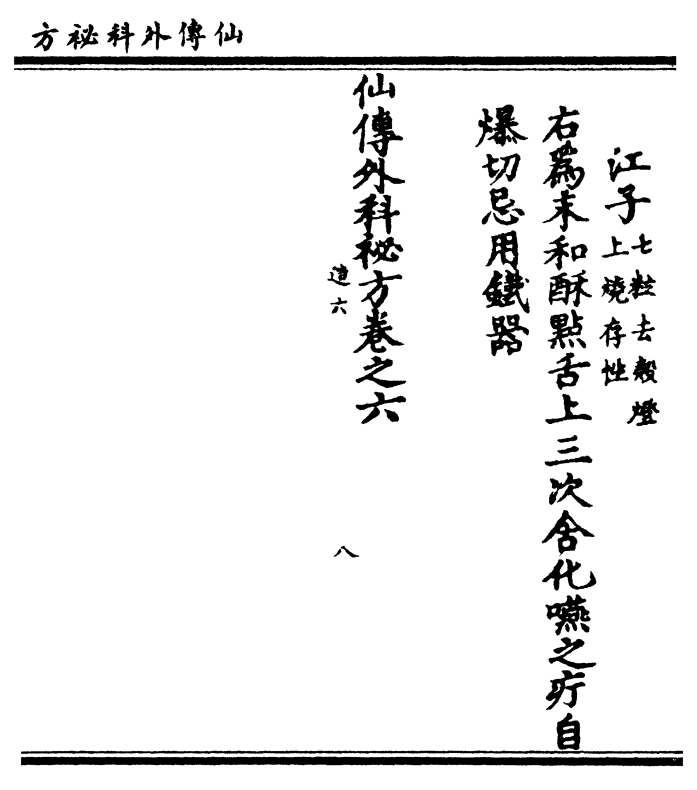 仙傳外科祕方
江子七粒去殼燈
上燒存性
右爲末和酥點舌上三次含化嚥之疔自
爆切忌用鐵器
仙傳外科祕方卷之六
造六
八